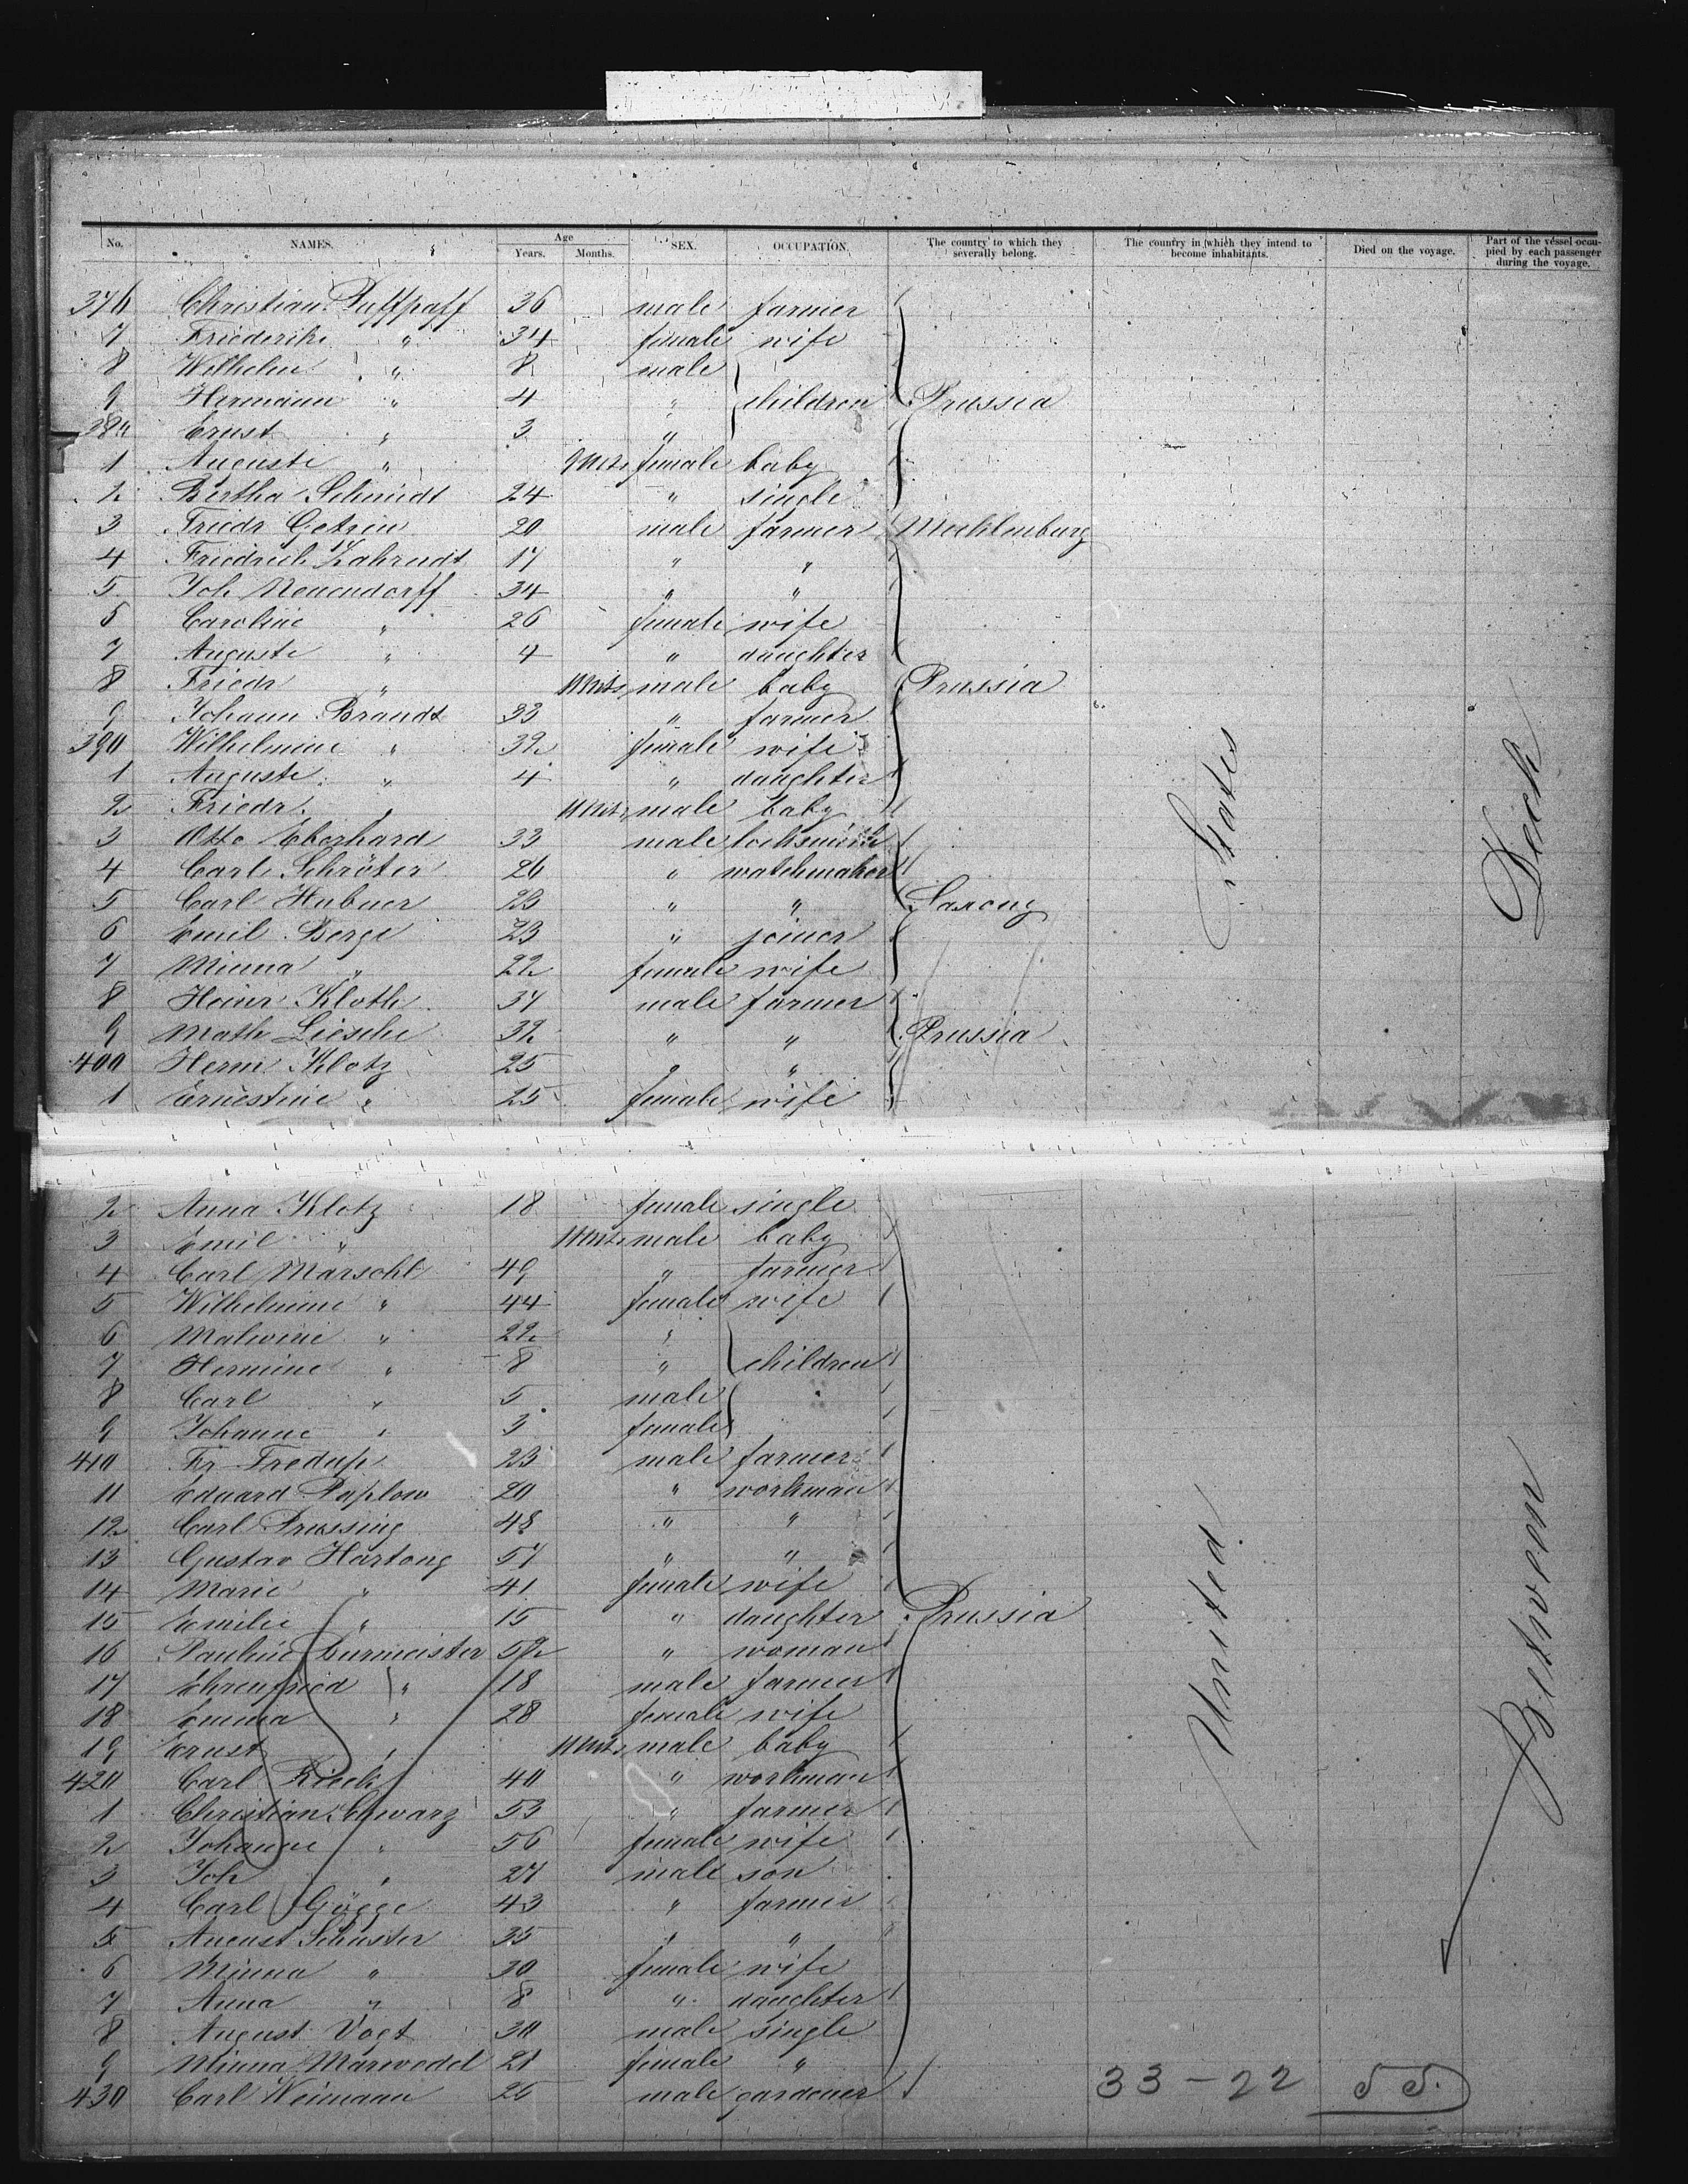 No. NAMES. Age Years. Months. SEX. OCCUPATION. The country to which they severally belong. The country in which they intend to become inhabitants. Died on the voyage. Part of the vessel occupied by each passenger during the voyage.
376 Christian Puffpaff 36 male farmer
7 Friederike " 34 female wife
8 Wilhelm " 8 male
9 Hermann " 4 " children Prussia
380 Ernst " 3 "
1 Auguste " 9 Mts female baby
2 Bertha Schmidt 24 " single
3 Friedr Getzin 20 male farmer Mecklenburg
4 Friedrich Zahrndt 17 " "
5 Joh Neuendorff 34 " "
5 Caroline " 26 female wife
7 Auguste " 4 " daughter
8 Friedr " 11 Mts male baby Prussia
9 Johann Brandt 33 " farmer
390 Wilhelmine " 32 female wife
1 Auguste " 4 " daughter
2 Friedr. " 11 Mts male baby
3 Otto Eberhard 33 male locksmith
4 Carl Schröter 26 " watchmaker
5 Carl Hubner 23 " " Saxony
6 Emil Berge 23 " joiner
7 Minna " 22 female wife
8 Heinr Kloth 37 male farmer
9 Math Liesche 32 " " Prussia
400 Herm Klotz 25 " "
1 Ernestine " 25 female wife
States
Deck
2 Anna Klotz 18 female single
3 Emil " 11 Mts male baby
4 Carl Marschl 49 " farmer
5 Wilhelmine " 44 female wife
6 Malwine " 22 "
7 Hermine " 8 " children
8 Carl " 5 male
9 Johanne " 3 female
410 Fr Fredup 23 male farmer
11 Eduard Paplow 20 " workman
12 Carl Prussing 48 " "
13 Gustav Hartong 57 " "
14 Marie " 41 female wife
15 Emilie " 15 " daughter Prussia
16 Pauline Burmeister 52 " woman
17 Ehrenfried " 18 male farmer
18 Emma " 28 female wife
19 Ernst " 11 Mts male baby
420 Carl Rieck 40 " workman
1 Christian Schwarz 53 " farmer
2 Johanne " 56 female wife
3 Joh " 27 male son
4 Carl Gögge 43 " farmer
5 August Schuster 35 " "
6 Minna " 30 female wife
7 Anna " 8 " daughter
8 August Vogt 30 male single
9 Minna Marwedel 21 female "
430 Carl Weimann 25 male gardener
United
Between
33-22 55.